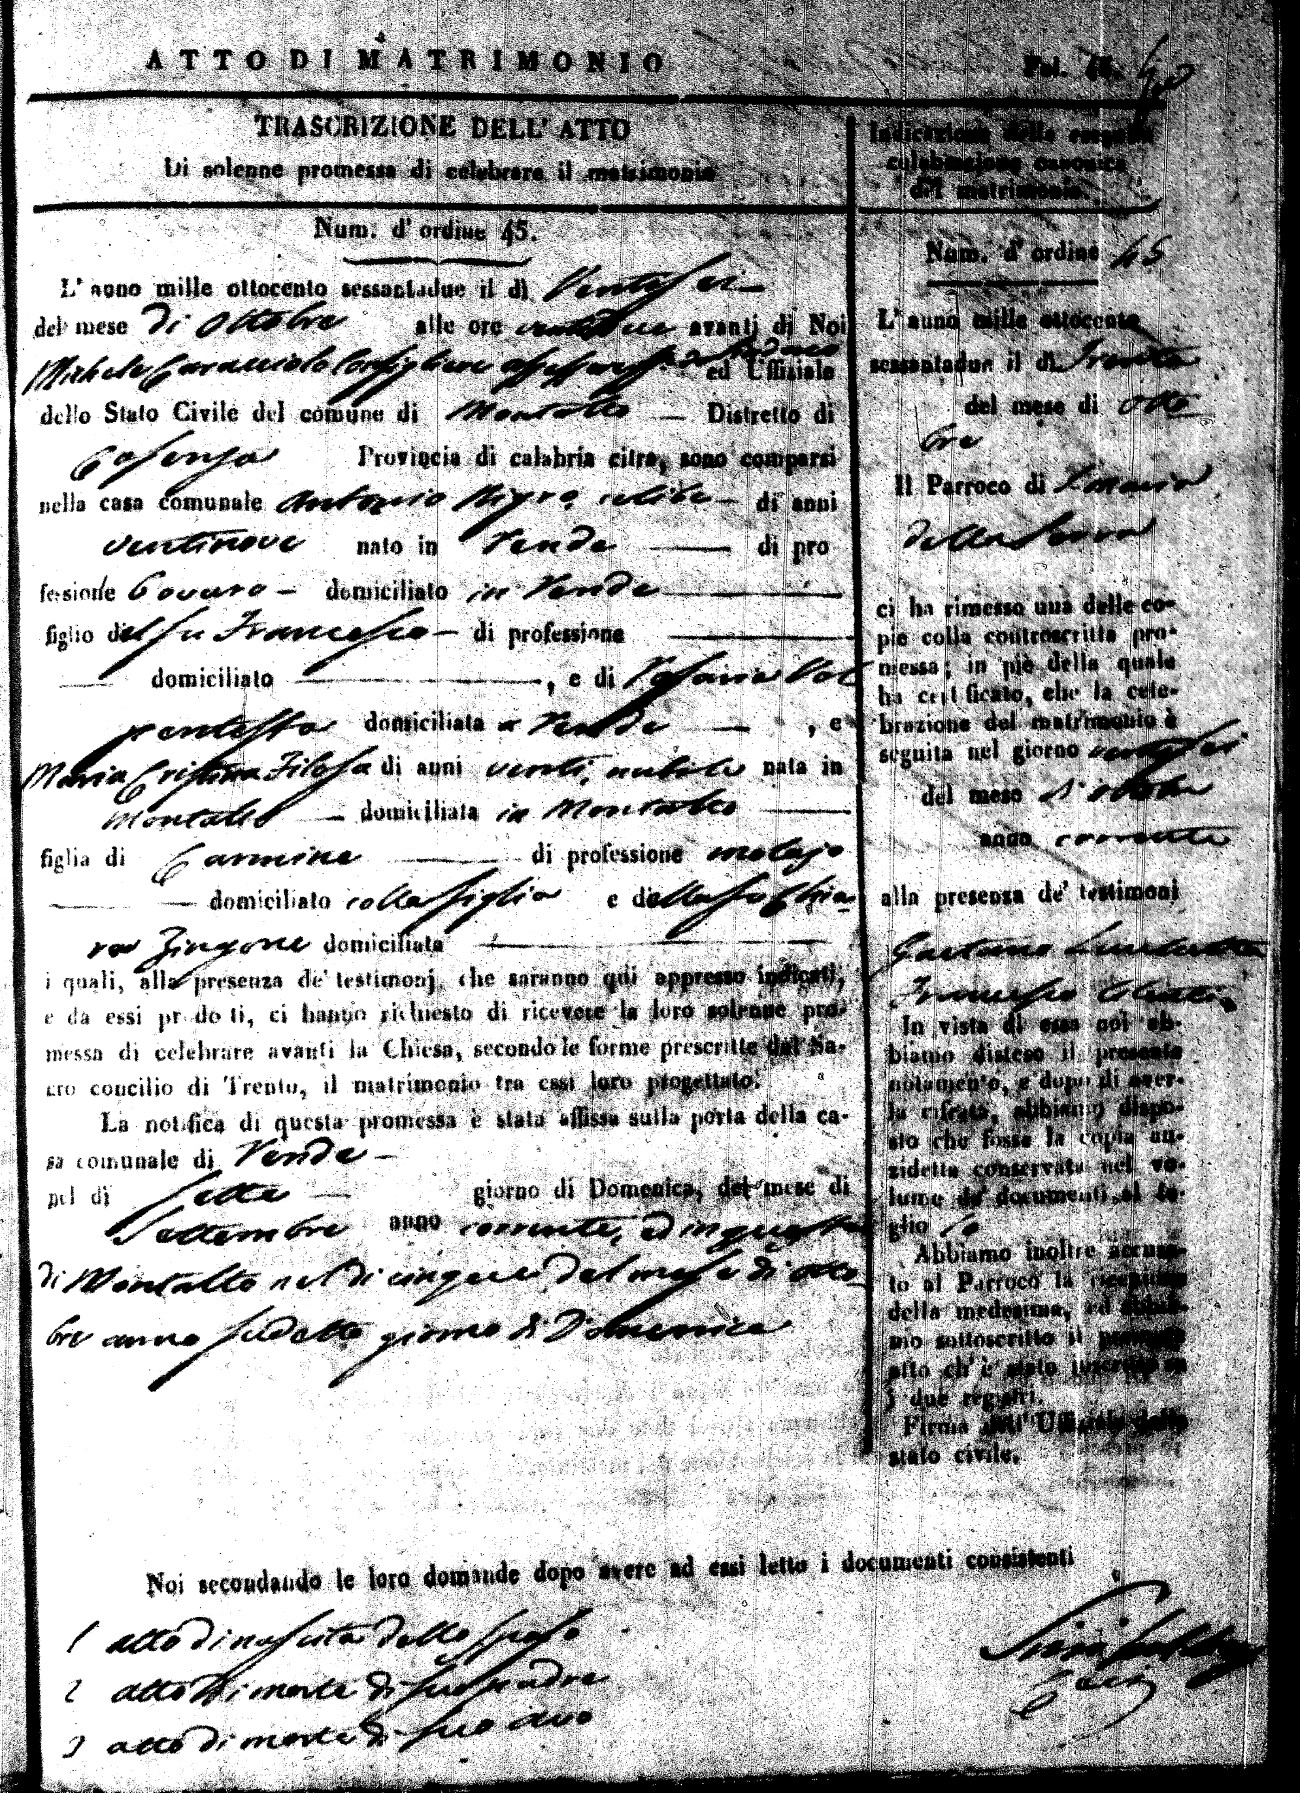 ATTO DI MATRIMONIO
Fol.
TRASCRIZIONE DELL' ATTO
Di solenne promessa di celebrare il matrimonio
Num. d' ordine 45.
L' anno mille ottocento sessantadue il dì Ventisei
del mese di Ottobre alle ore avanti di Noi
Michele Caracciolo Consigliere ed Uffiziale
dello Stato Civile del comune di Montalto Distretto di
Cosenza Provincia di calabria citra, sono comparsi
nella casa comunale Antonio Nigro celibe di anni
ventinove nato in Rende di pro
fessione Bovaro domiciliato in Rende
figlio del fu Francesco di professione
domiciliato , e di Rosaria Vol
pentesta domiciliata a Rende , e
Maria Cristina Filosa di anni venti, nubile nata in
Montalto domiciliata in Montalto
figlia di Carmine di professione
domiciliato colla figlia e della fu Chia
ra Zingone domiciliata
i quali, alla presenza de' testimonj, che saranno qui appresso indicati,
e da essi prodotti, ci hanno richiesto di ricevere la loro solenne pro-
messa di celebrare avanti la Chiesa, secondo le forme prescritte dal Sa-
cro concilio di Trento, il matrimonio tra essi loro progettato.
La notifica di questa promessa è stata affissa sulla porta della ca-
sa comunale di Rende
nel dì Sette giorno di Domenica, del mese di
Settembre anno corrente, ed in questa
di Montalto nel dì cinque del mese di Otto
bre anno sudetto giorno di Domenica
Indicazione della seguita
celebrazione canonica
del matrimonio.
Num. d' ordine 45
L' anno mille ottocento
sessantadue il dì Trenta
del mese di Otto
bre
Il Parroco di S. Maria
della Serra
ci ha rimesso una delle co-
pie colla controscritta pro-
messa; in piè della quale
ha certificato, che la cele-
brazione del matrimonio è
seguita nel giorno ventisei
del mese d'ottobre
anno corrente
alla presenza de' testimonj
Gaetano
Francesco
In vista di essa noi ab-
biamo disteso il presente
notamento, e dopo di aver-
la cifrata, abbiamo dispo-
sto che fosse la copia an-
zidetta conservata nel vo-
lume de' documenti al fo-
glio
Abbiamo inoltre accusa-
to al Parroco la ricezione
della medesima, ed abbia-
mo sottoscritto il presente
atto ch' è stato inscritto su
i due registri.
Firma dell' Uffiziale dello
stato civile.
Noi secondando le loro domande dopo avere ad essi letto i documenti consistenti
1 atto di nascita dello sposo
2 atto di morte di suo padre
3 atto di morte di suo avo